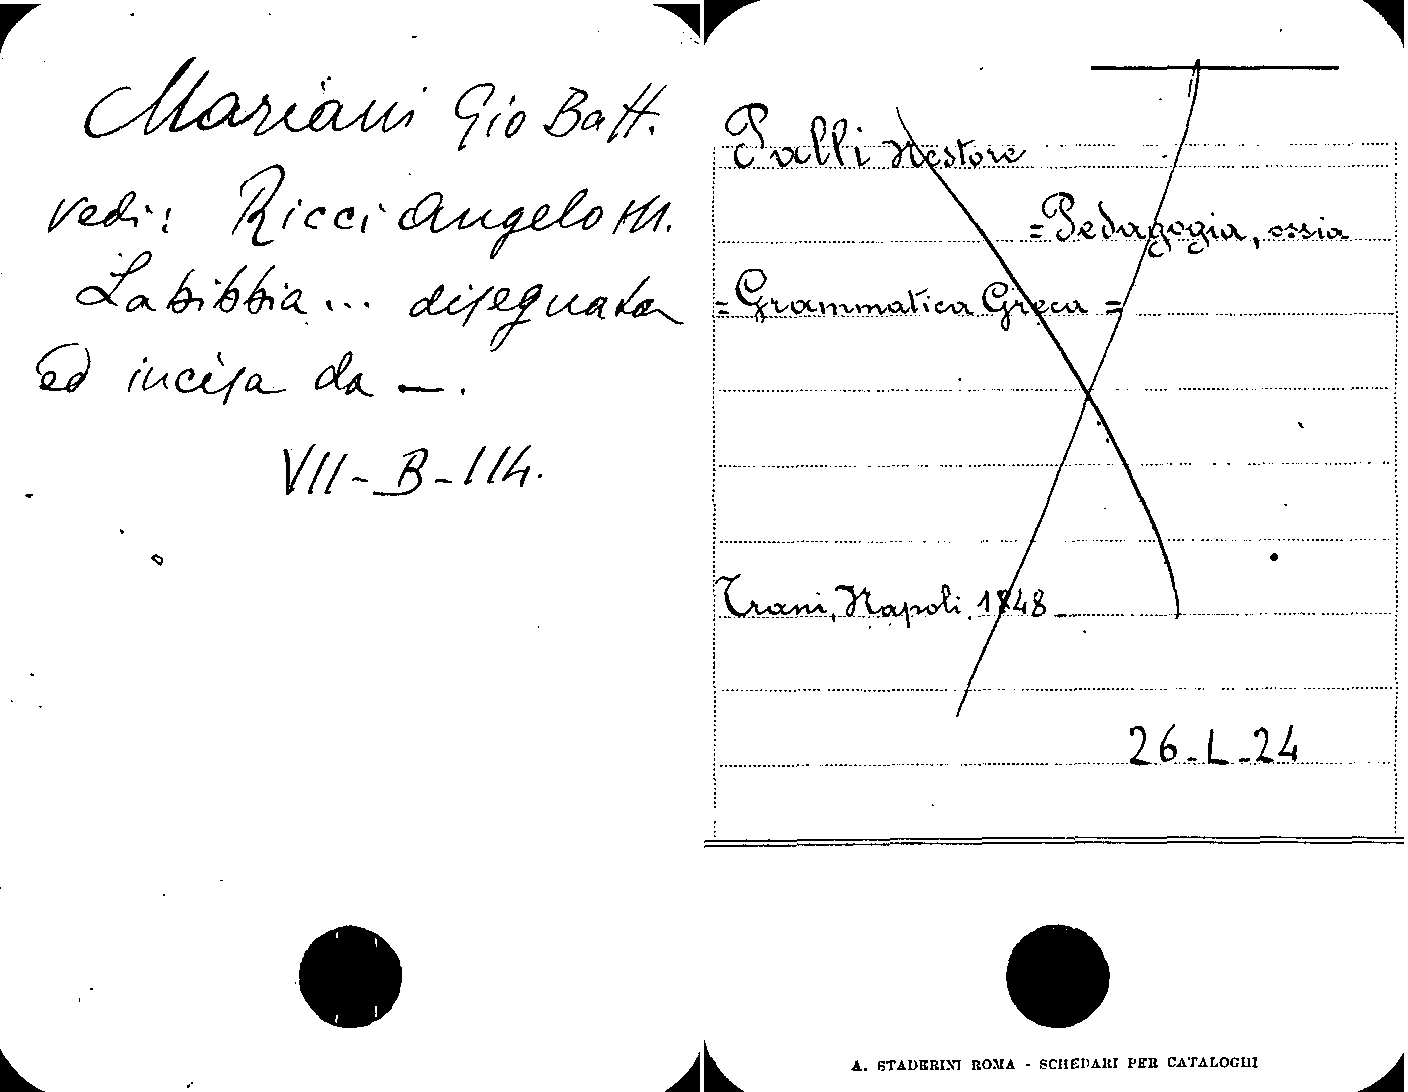 Mariani Gio Batt.
vedi: Ricci Angelo M.
La bibbia... disegnata
ed incisa da —.
VII-B-114.
Palli Nestore
=Pedagogia, ossia
=Grammatica Greca=
Trani, Napoli, 1848_
26-L-24
A. STADERINI ROMA - SCHEDARI PER CATALOGHI